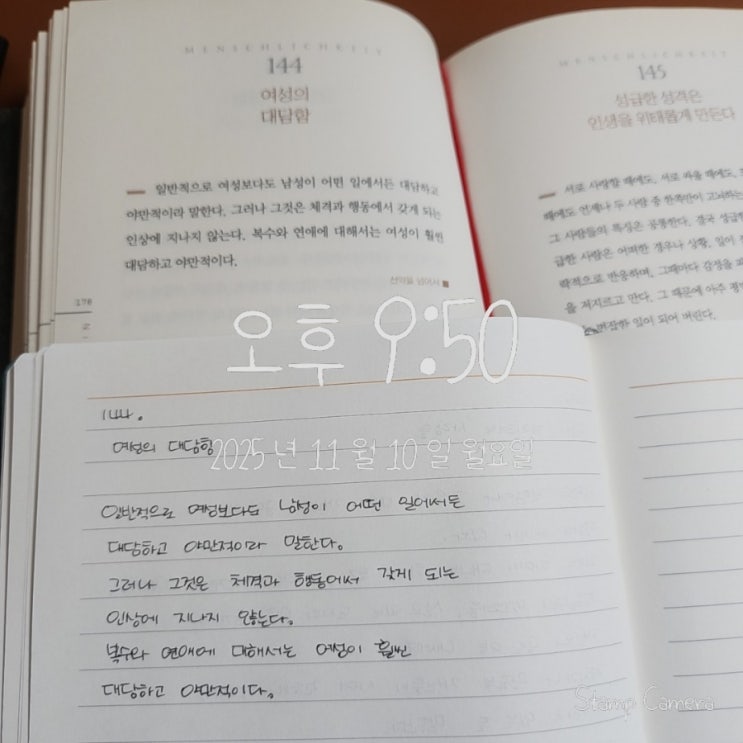 MENSCHLICHKEIT
144
여성의
대담함
일반적으로 여성보다도 남성이 어떤 일에서든 대담하고
야만적이라 말한다. 그러나 그것은 체격과 행동에서 갖게 되는
인상에 지나지 않는다. 복수와 연애에 대해서는 여성이 훨씬
대담하고 야만적이다.
선악을 넘어서
178
MENSCHLICHKEIT
145
성급한 성격은
인생을 위태롭게 만든다
서로 사랑할 때에도, 서로 싸울 때에도,
때에도 언제나 두 사람 중 한쪽만이 고뇌하는
그 사람들의 특징은 공통한다. 결국 성급
급한 사람은 어떠한 경우나 상황, 일이
락적으로 반응하며, 그때마다 감정을
을 저지르고 만다. 그 때문에 아주 평
일이 되어 버린다.
오후 9:50
2025년 11월 10일 월요일
144.
여성의 대담함
일반적으로 여성보다도 남성이 어떤 일에서든
대담하고 야만적이라 말한다.
그러나 그것은 체격과 행동에서 갖게 되는
인상에 지나지 않는다.
복수와 연애에 대해서는 여성이 훨씬
대담하고 야만적이다.
Stamp Camera